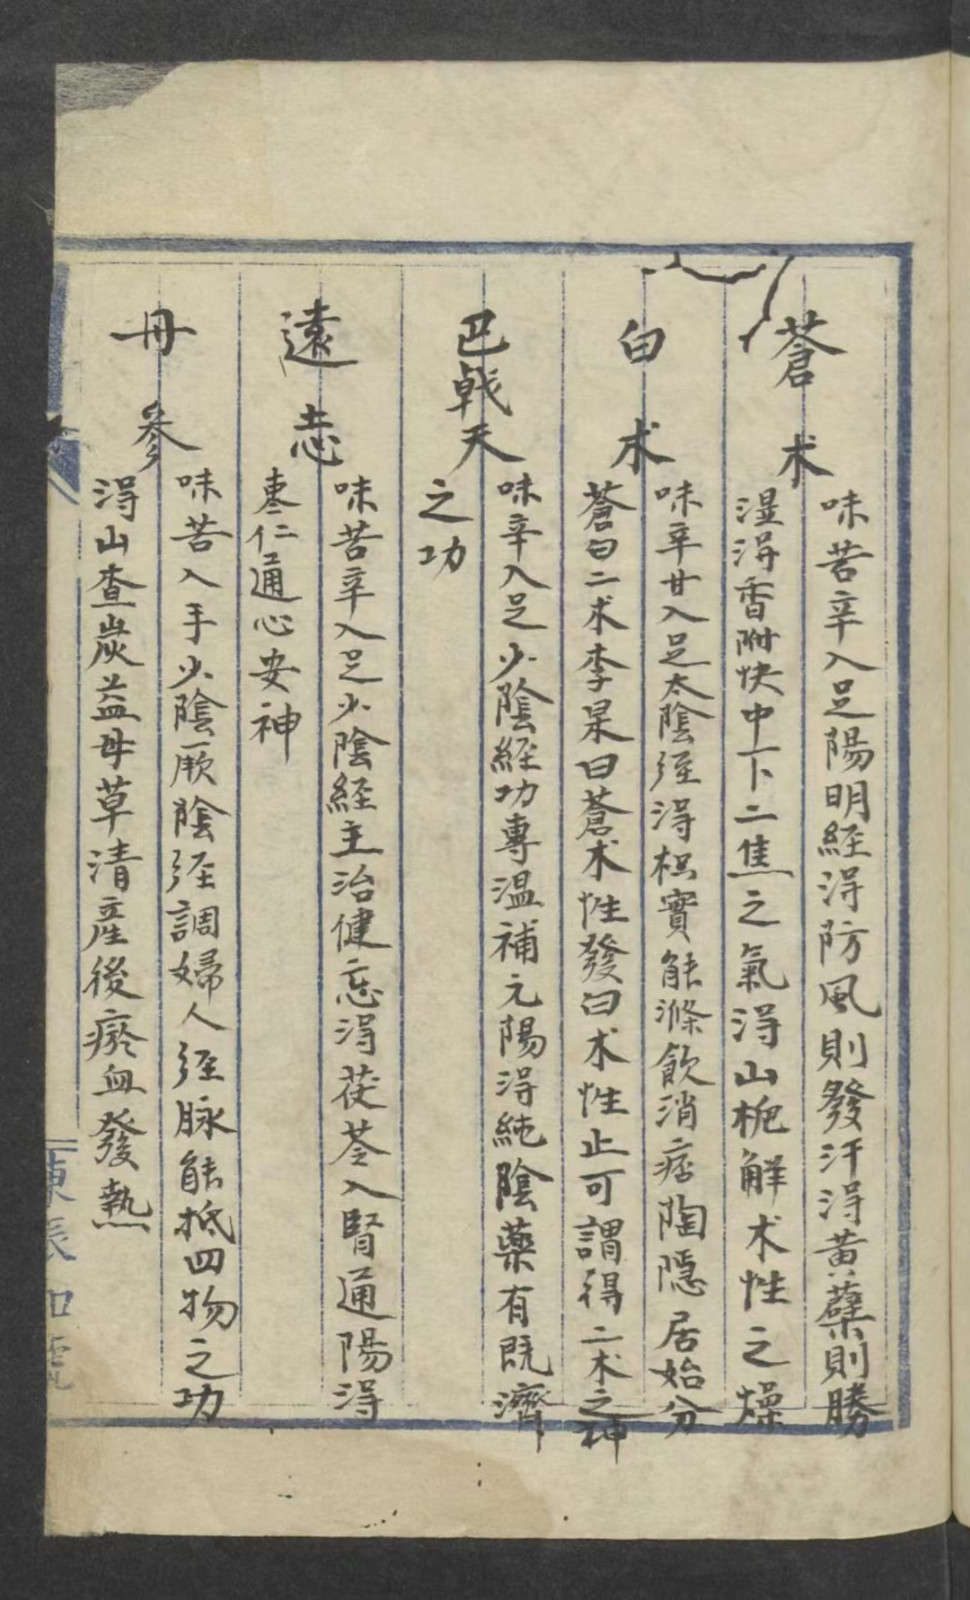 蒼术
味苦辛入足陽明經淂防風則發汗淂黄蘗則勝
湿淂香附快中下二焦之氣淂山栀解术性之燥
白术
味辛甘入足太陰經淂枳實能滌飲消痞陶隱居始分
蒼白二术李杲曰蒼术性發白术性止可謂得二术之神
巴戟天
味辛入足少陰經功專温補元陽淂純陰藥有既濟
之功
遠志
味苦辛入足少陰経主治健忘淂茯苓入腎通陽淂
棗仁通心安神
丹參
味苦入手少陰厥陰經調婦人經脉能抵四物之功
淂山查炭益母草清產後瘀血發熱